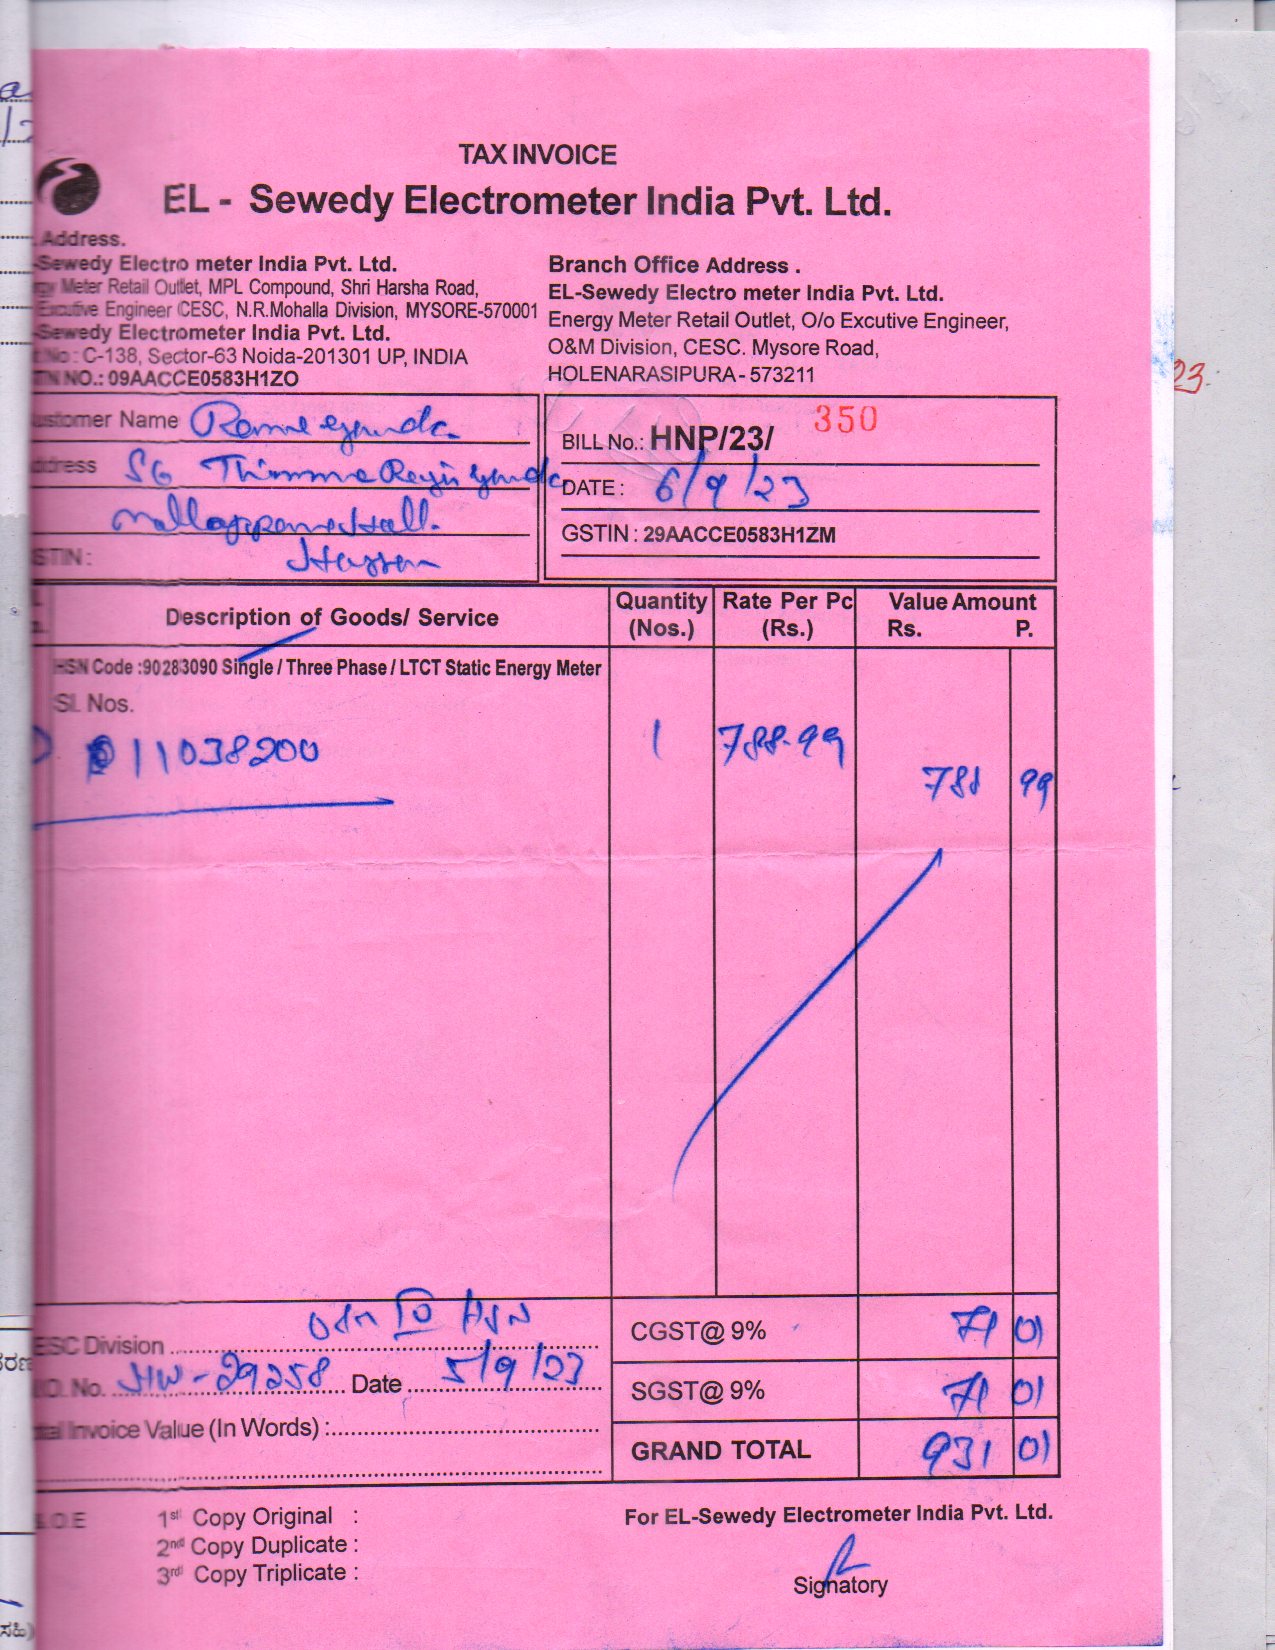 TAX INVOICE
EL - Sewedy Electrometer India Pvt. Ltd.
Address.
-Sewedy Electro meter India Pvt. Ltd.
Meter Retail Outlet, MPL Compound, Shri Harsha Road,
Excutive Engineer CESC, N.R.Mohalla Division, MYSORE-570001
-Sewedy Electrometer India Pvt. Ltd.
No : C-138, Sector-63 Noida-201301 UP, INDIA
NO.: 09AACCE0583H1ZO
Branch Office Address .
EL-Sewedy Electro meter India Pvt. Ltd.
Energy Meter Retail Outlet, O/o Excutive Engineer,
O&M Division, CESC. Mysore Road,
HOLENARASIPURA - 573211
ustomer Name Ramegowda
ddress SG
Hassan
STIN :
BILL No.: HNP/23/ 350
DATE : 6/9/23
GSTIN : 29AACCE0583H1ZM
Description of Goods/ Service
Quantity (Nos.)
Rate Per Pc (Rs.)
Value Amount
Rs. P.
HSN Code :90283090 Single / Three Phase / LTCT Static Energy Meter
Sl. Nos.
11038200 1 788.99 788 99
ESC Division O&M HSN
CGST@ 9% 71 01
No. HW-29258 Date 5/9/23
SGST@ 9% 71 01
tal Invoice Value (In Words) :
GRAND TOTAL 931 01
& O E
1st Copy Original :
2nd Copy Duplicate :
3rd Copy Triplicate :
For EL-Sewedy Electrometer India Pvt. Ltd.
Signatory
23